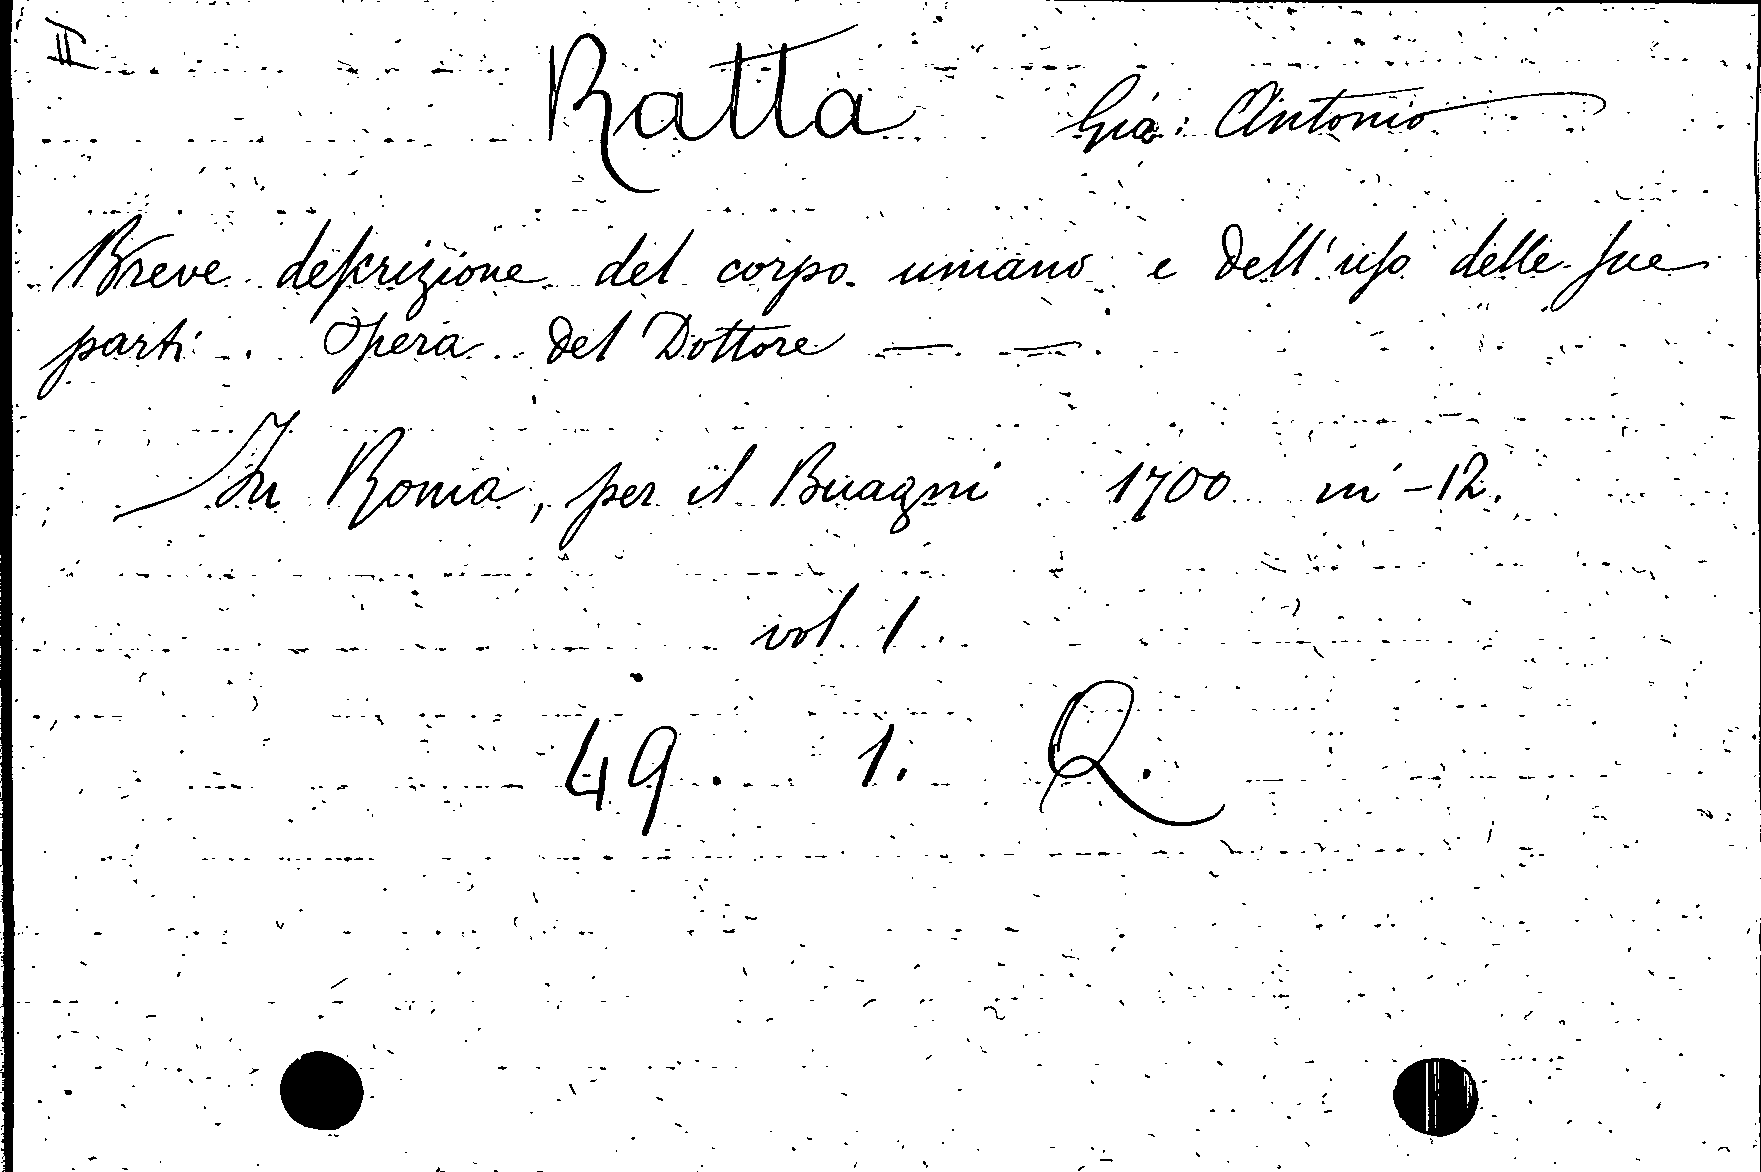 II
Ratta Gia: Antonio
Breve deſcrizione del corpo umano e dell'uſo delle ſue
parti. Opera del Dottore — —.
In Roma, per il Buagni 1700 in-12.
vol 1.
49. 1. Q.